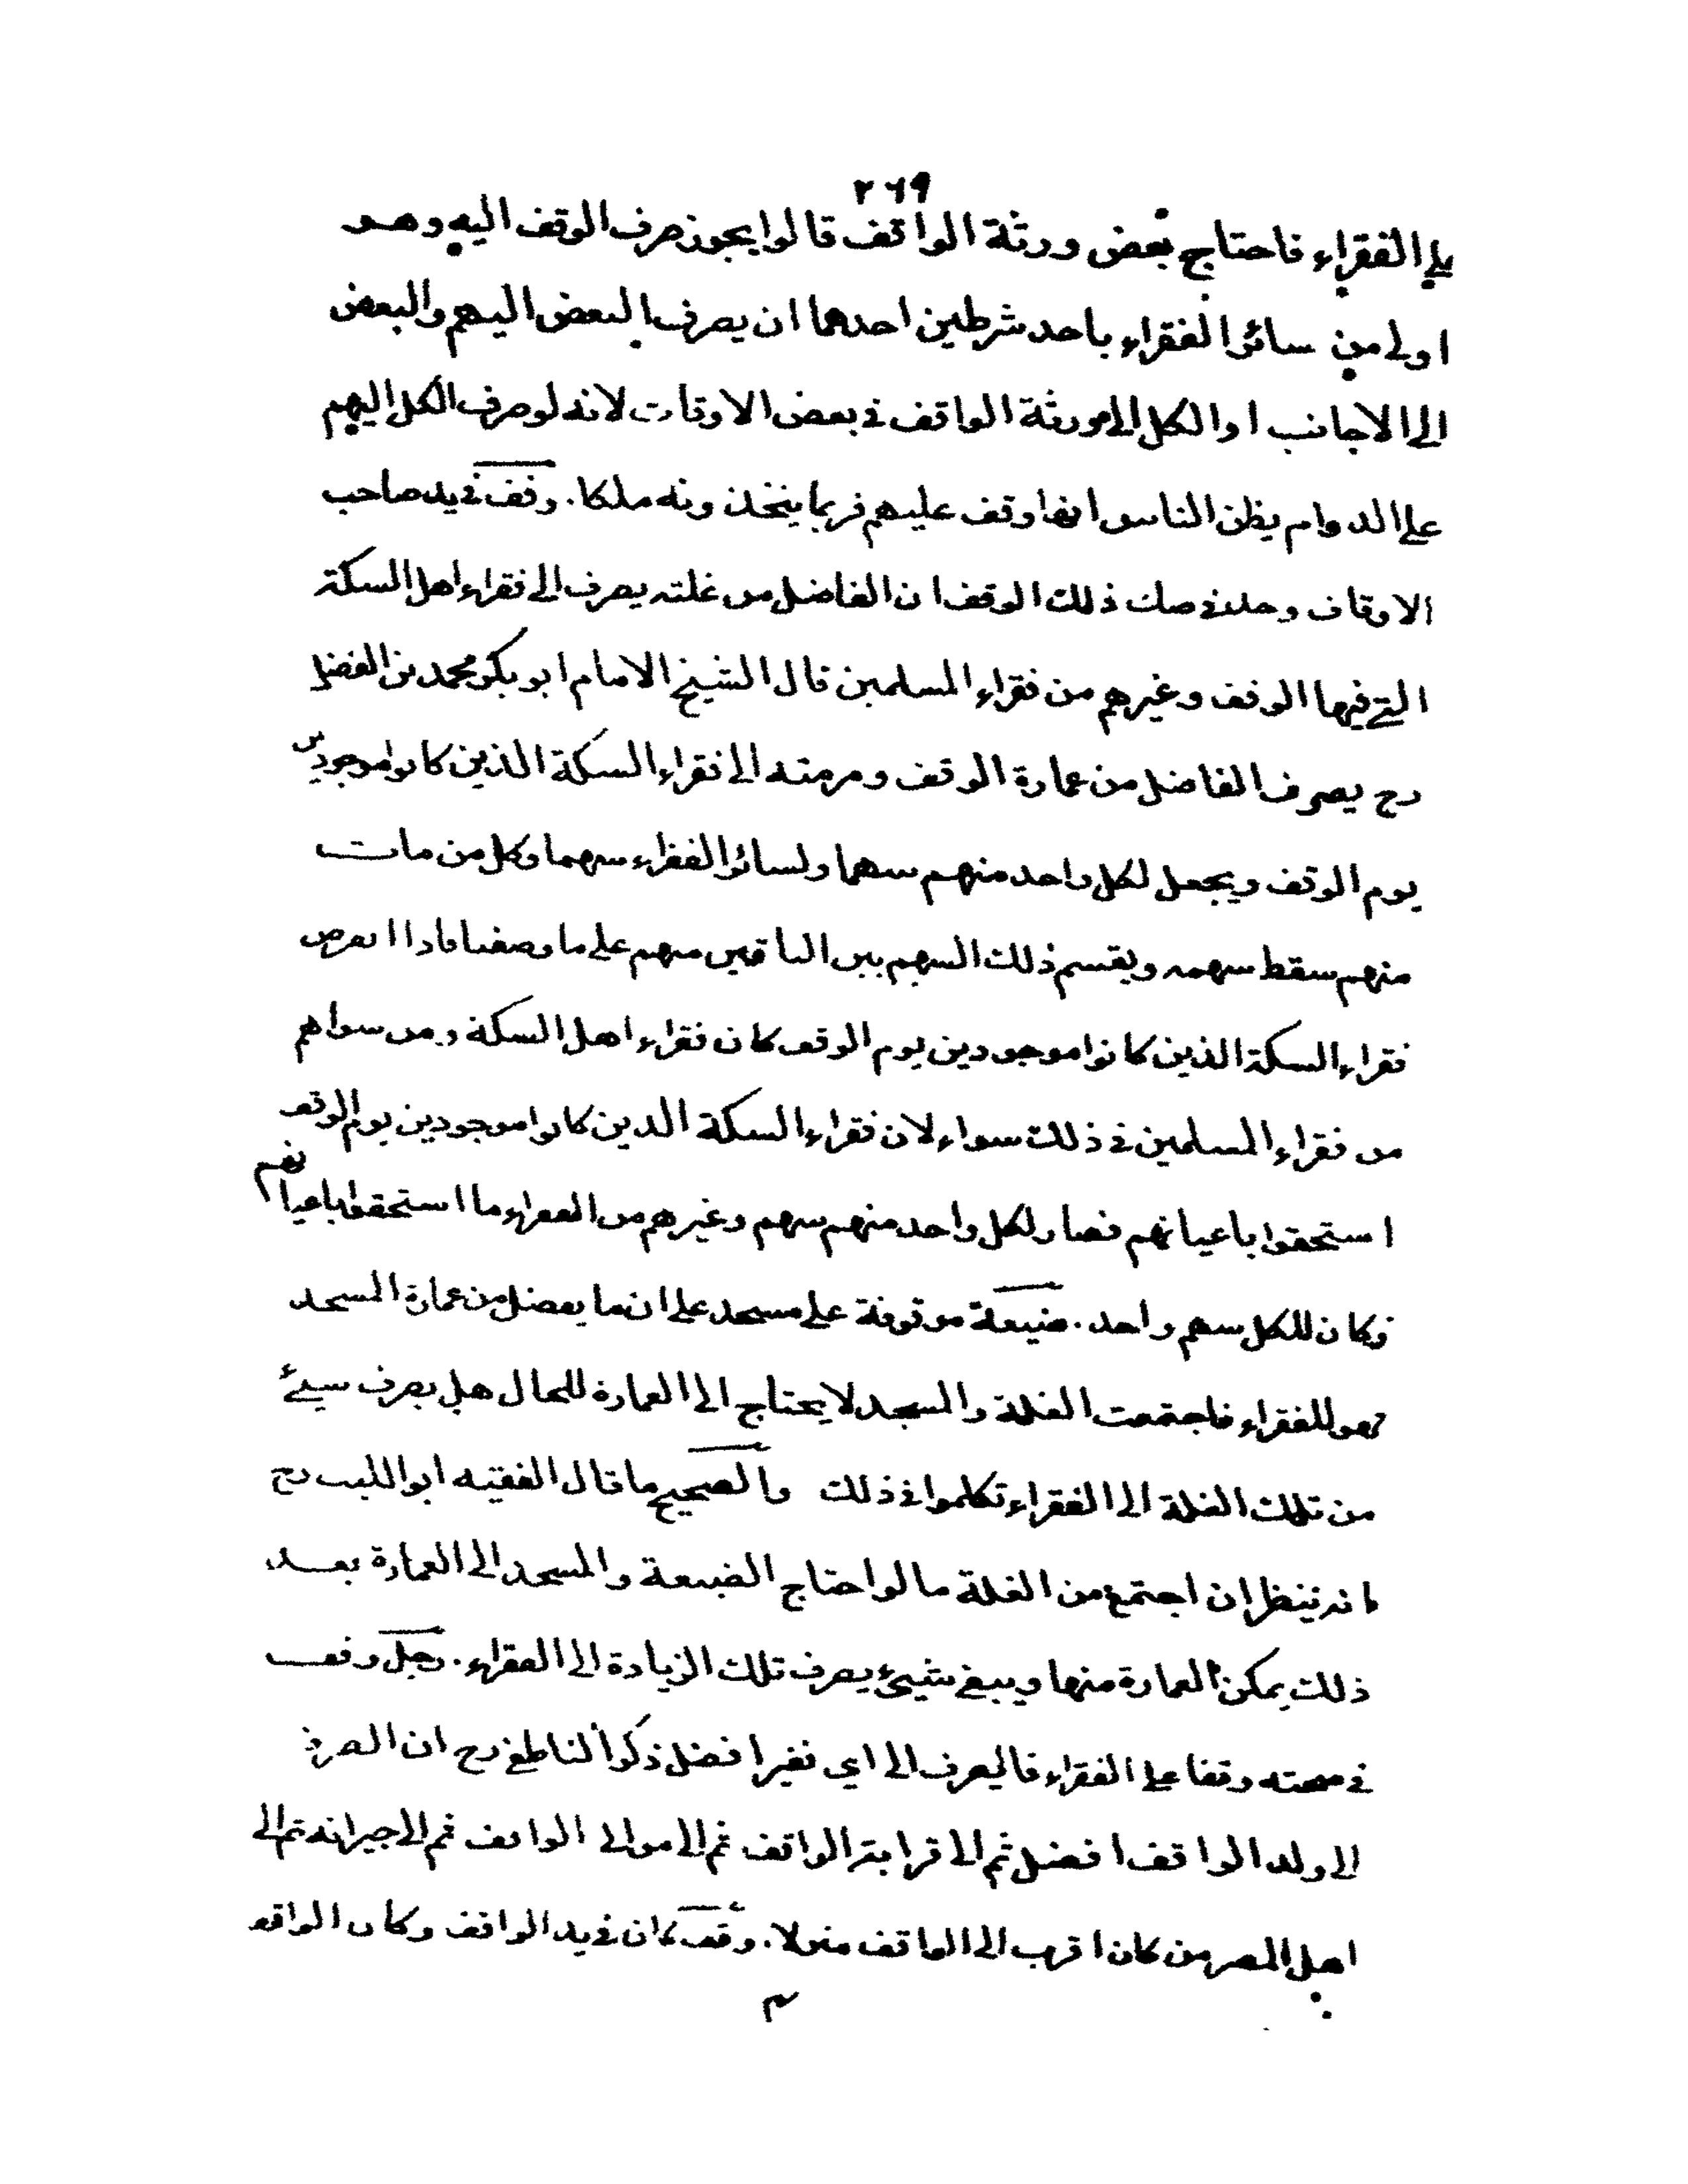 ٢٦٩
علي الفقراء فاحتاج بعض ورثة الواقف قالوا يجوز صرف الوقف اليه وهو
اولى من سائر الفقراء باحد شرطين احدهما ان يصرف البعض اليهم والبعض
الى الاجانب او الكل الى ورثة الواقف في بعض الاوقات لانه لو صرف الكل اليهم
على الدوام يظن الناس انها وقف عليهم فربما يتخذونه ملكا . وقف في يد صاحب
الاوقاف وجد في صك ذلك الوقف ان الفاضل من غلته يصرف الى فقراء اهل السكة
التي فيها الوقف وغيرهم من فقراء المسلمين قال الشيخ الامام ابو بكر محمد بن الفضل
رح يصرف الفاضل من عمارة الوقف ومرمته الى فقراء السكة الذين كانوا موجودين
يوم الوقف ويجعل لكل واحد منهم سهما ولسائر الفقراء سهما وكل من مات
منهم سقط سهمه ويقسم ذلك السهم بين الباقين منهم على ما وصفنا فاذا انقرض
فقراء السكة الذين كانوا موجودين يوم الوقف كان فقراء اهل السكة ومن سواهم
من فقراء المسلمين في ذلك سواء لان فقراء السكة الذين كانوا موجودين يوم الوقف
استحقوا باعيانهم فصار لكل واحد منهم سهم وغيرهم من الفقراء ما استحقوا باعيانهم
وكان للكل سهم واحد . ضيعة موقوفة على مسجد على ان ما يفضل من عمارة المسجد
فهو للفقراء فاجتمعت الغلة والمسجد لا يحتاج الى العمارة للحال هل يصرف شيئ
من تلك الغلة الى الفقراء تكلموا في ذلك والصحيح ما قال الفقيه ابو الليث رح
انه ينظر ان اجتمع من الغلة ما لو احتاج الضيعة والمسجد الى العمارة بعد
ذلك يمكن العمارة منها ويبقى شيئ يصرف تلك الزيادة الى الفقراء . رجل وقف
في صحته وقفا على الفقراء فاليصرف الى اي فقير افضل ذكر الناطفي رح ان الصرف
الى ولد الواقف افضل ثم الى قرابة الواقف ثم الى موالى الواقف ثم الى جيرانه ثم الى
اهل المصر من كان اقرب الى الواقف منزلا . وقف كان في يد الواقف وكان الواقف